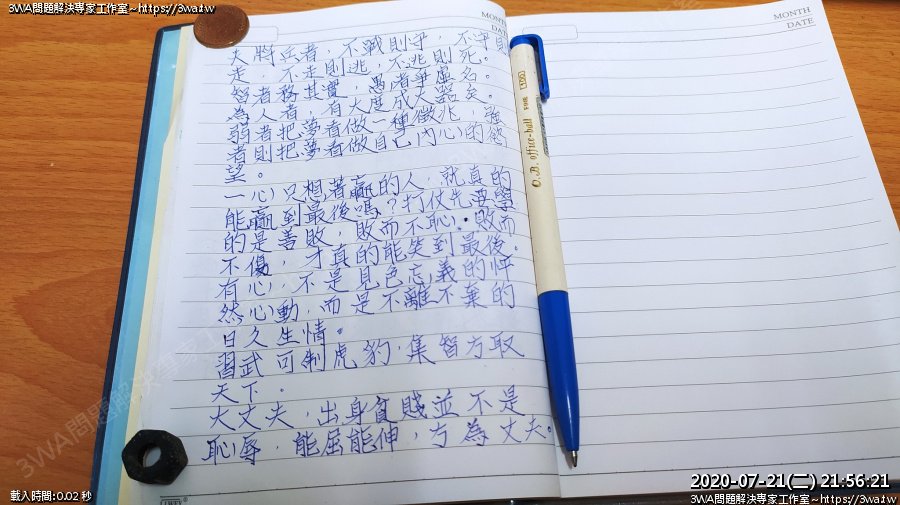 3WA問題解決專家工作室~https://3wa.tw
3WA問題解決專家工作室~https://3wa.tw
MONTH
DATE
MONTH
DATE
夫將兵者,不戰則守,不守則
走,不走則逃,不逃則死。
智者務其實,愚者爭虛名。
為人者,有大度成大器矣。
弱者把夢看做一種徵兆,強
者則把夢看做自己內心的慾
望。
一心只想著贏的人,就真的
能贏到最後嗎?打仗先要學
的是善敗,敗而不恥,敗而
不傷,才真的能笑到最後。
有心,不是見色忘義的怦
然心動,而是不離不棄的
日久生情。
習武可制虎豹,集智方取
天下。
大丈夫,出身貧賤並不是
恥辱,能屈能伸,方為丈夫。
O.B. office-ball
載入時間:0.02 秒
2020-07-21(二) 21:56:21
3WA問題解決專家工作室~https://3wa.tw